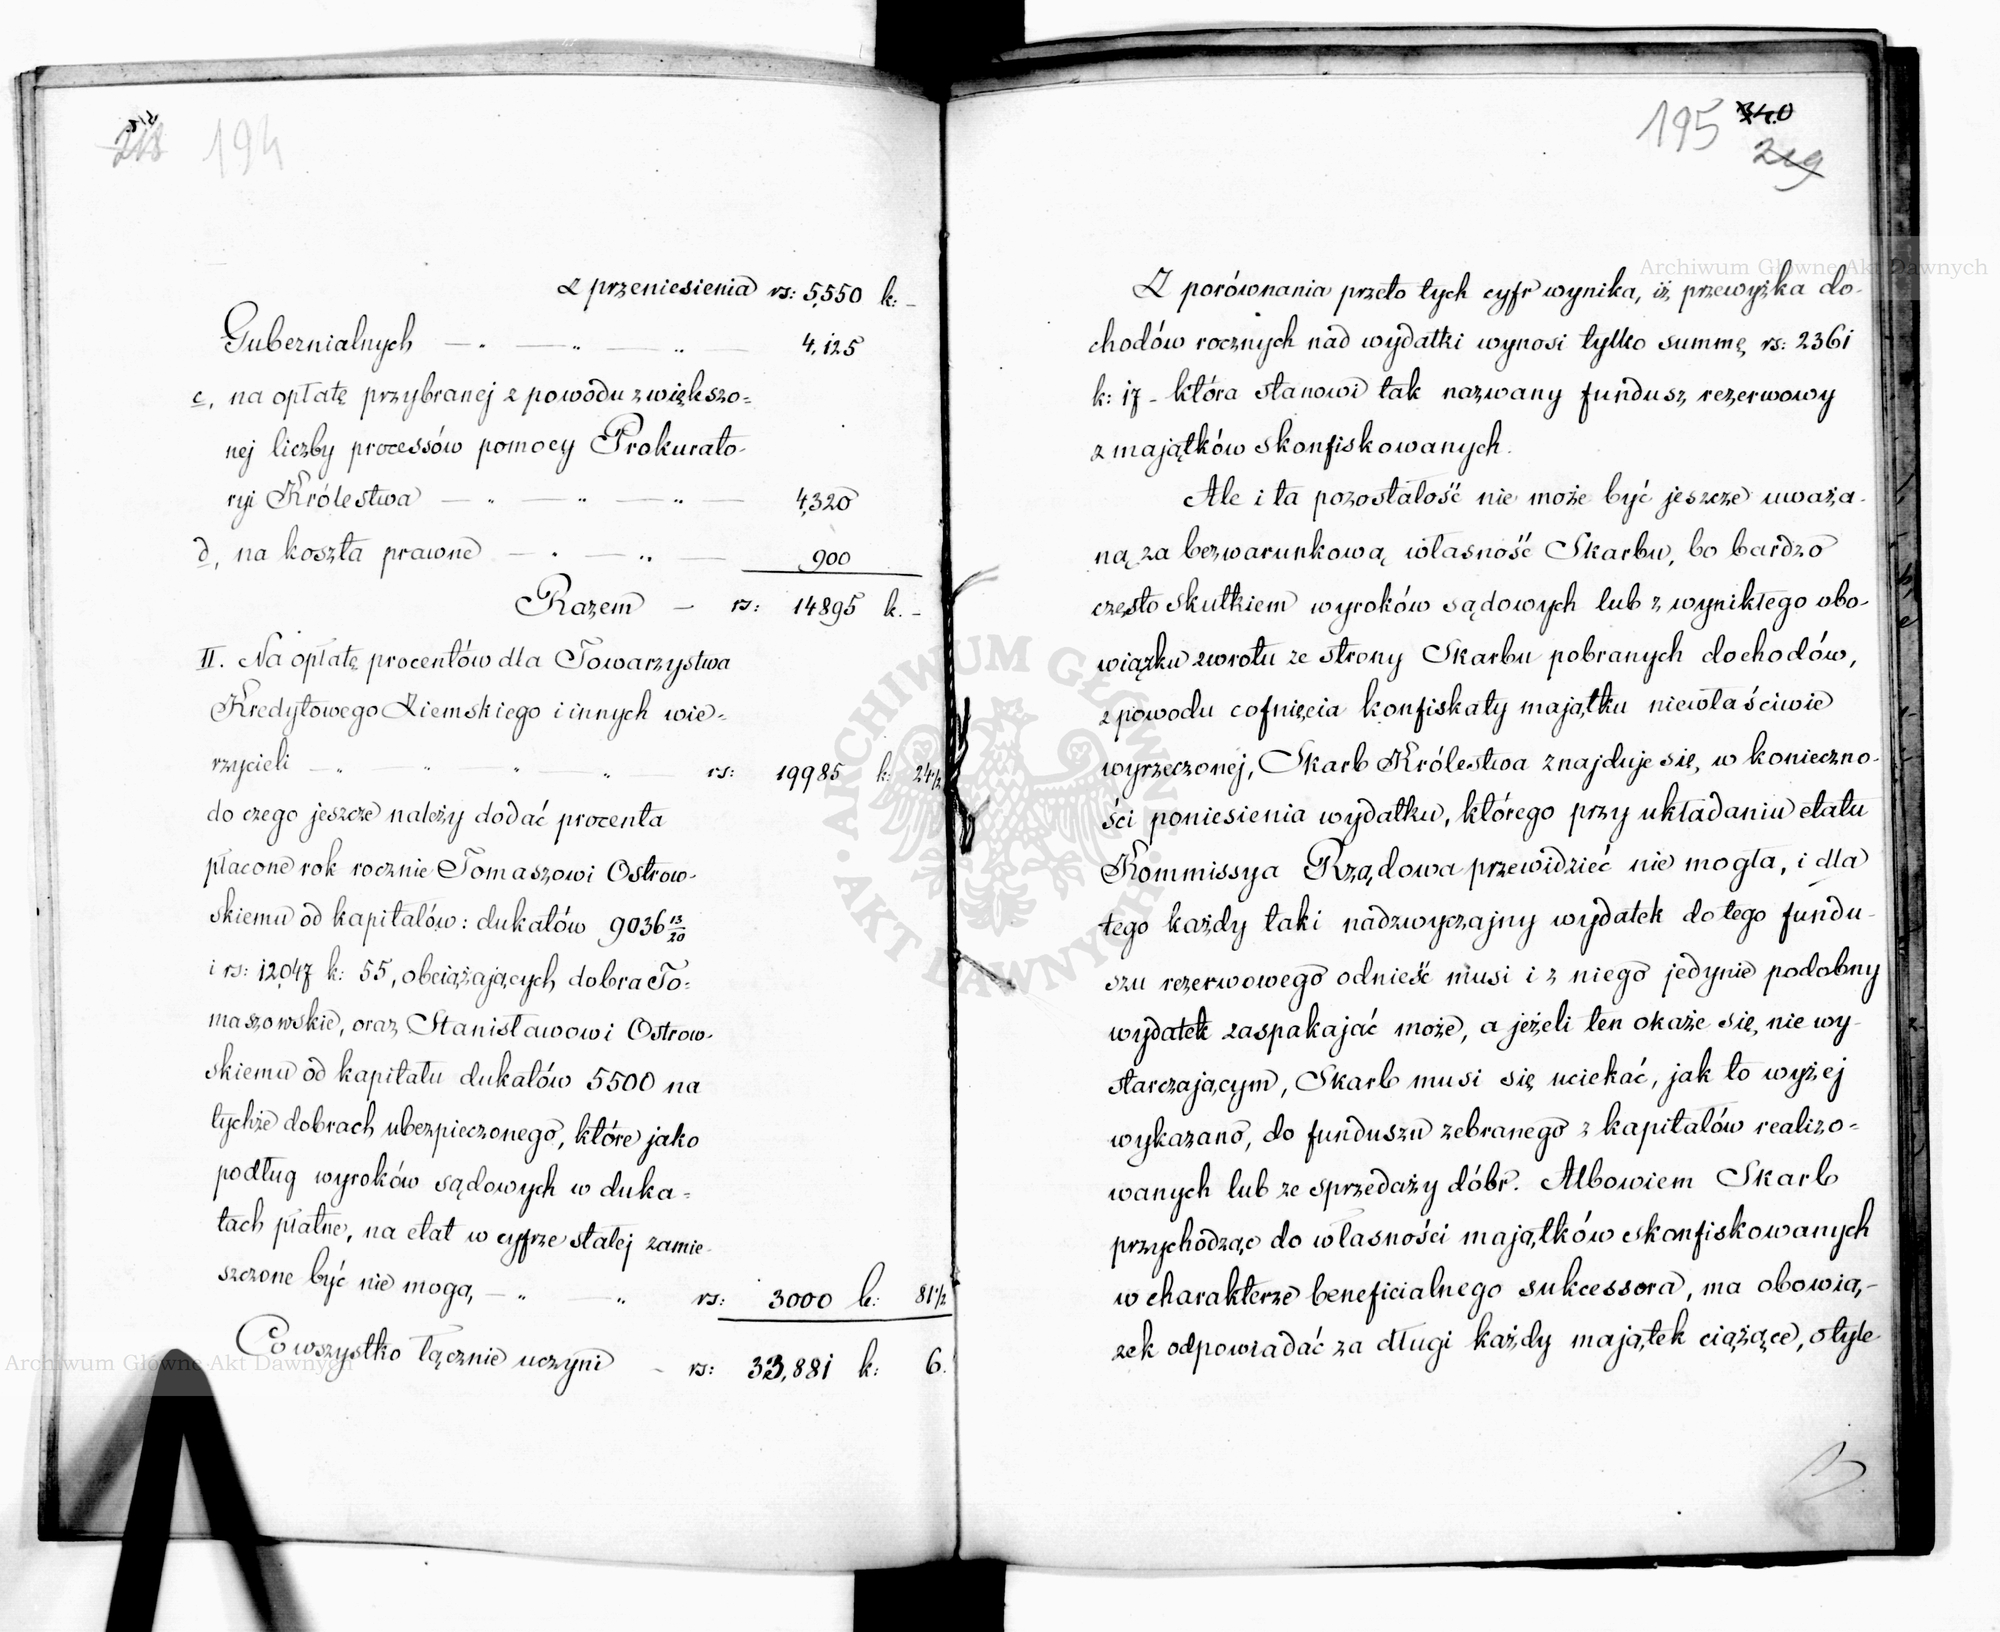 194
Z przeniesienia rs: 5,550 k: –
Gubernialnych — „ — „ — „ — 4,125
c, na opłatę przybranej z powodu zwiększo=
nej liczby processów pomocy Prokurato-
ryi Królestwa — „ — „ — „ — 4,320
d, na koszta prawne — „ — „ — 900
Razem — rs: 14895 k. –
II. Na opłatę procentów dla Towarzystwa
Kredytowego Ziemskiego i innych wie=
rzycieli — „ — „ — „ — „ — rs: 19985 k: 24½
do czego jeszcze należy dodać procenta
płacone rok rocznie Tomaszowi Ostrow-
skiemu od kapitałów: dukatów 9036 13/20
i rs: 12,047 k: 55, obciążających dobra To=
maszowskie, oraz Stanisławowi Ostrow-
skiemu od kapitału dukatów 5500 na
tychże dobrach ubezpieczonego, które jako
podług wyroków sądowych w duka=
tach płatne, na etat w cyfrze stałej zamie-
szczone być nie mogą, — „ — „ rs: 3000 k: 81½
Co wszystko łącznie uczyni – rs: 33,881 k: 6.
195 340
219
Z porównania przeto tych cyfr wynika, iż przewyżka do-
chodów rocznych nad wydatki wynosi tylko summę rs: 2361
k: 17 – która stanowi tak nazwany fundusz rezerwowy
z majątków skonfiskowanych.
Ale i ta pozostałość nie może być jeszcze uważa-
ną za bezwarunkową własność Skarbu, bo bardzo
często skutkiem wyroków sądowych lub z wynikłego obo-
wiązku zwrotu ze strony Skarbu pobranych dochodów,
z powodu cofnięcia konfiskaty majątku niewłaściwie
wyrzeczonej, Skarb Królestwa znajduje się w konieczno-
ści poniesienia wydatku, którego przy układaniu etatu
Kommissya Rządowa przewidzieć nie mogła, i dla
tego każdy taki nadzwyczajny wydatek do tego fundu-
szu rezerwowego odnieść musi i z niego jedynie podobny
wydatek zaspakajać może, a jeżeli ten okaże się nie wy-
starczającym, Skarb musi się uciekać, jak to wyżej
wykazano, do funduszu zebranego z kapitałów realizo=
wanych lub ze sprzedaży dóbr. Albowiem Skarb
przychodząc do własności majątków skonfiskowanych
w charakterze beneficialnego sukcessora, ma obowią,-
zek odpowiadać za długi każdy majątek ciążące, o tyle
Archiwum Główne Akt Dawnych
Archiwum Główne Akt Dawnych
ARCHIWUM GŁÓWNE · AKT DAWNYCH ·